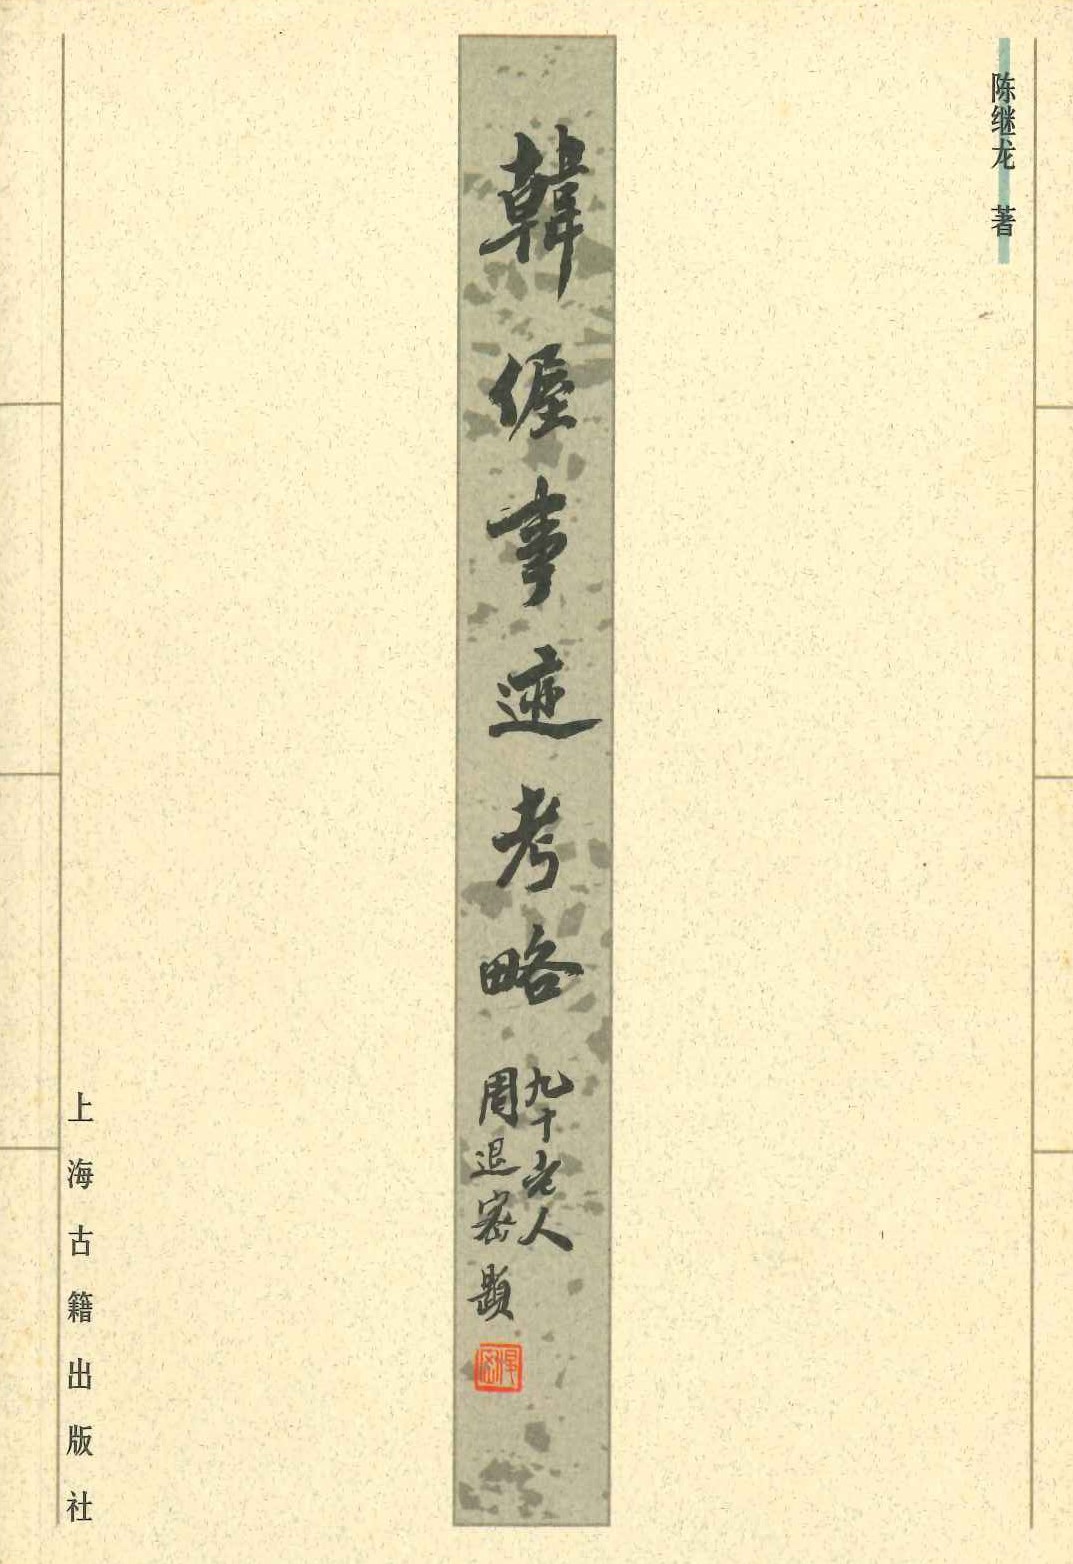 陈继龙 著
韓偓事迹考略
九十老人
周退密题
上海古籍出版社